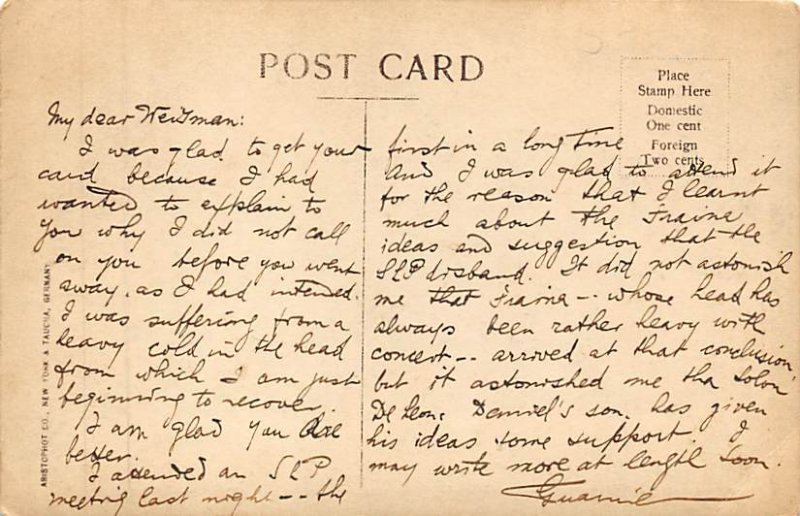 POST CARD
Place
Stamp Here
Domestic
One cent
Foreign
Two cents
ARISTOPHOT CO., NEW YORK & TAUCHA, GERMANY
My dear Weitman:
I was glad to get your
card because I had
wanted to explain to
you why I did not call
on you before you went
away, as I had intended.
I was suffering from a
heavy cold in the head
from which I am just
beginning to recover.
I am glad you are
better.
I attended an SLP
meeting last night -- the
first in a long time
And I was glad to attend it
for the reason that I learnt
much about the Fraina
ideas and suggestion that the
SLP disband. It did not astonish
me that Fraina -- whose head has
always been rather heavy with
conceit -- arrived at that conclusion,
but it astonished me tha Solon
De Leon, Daniel's son, has given
his ideas some support. I
may write more at length soon.